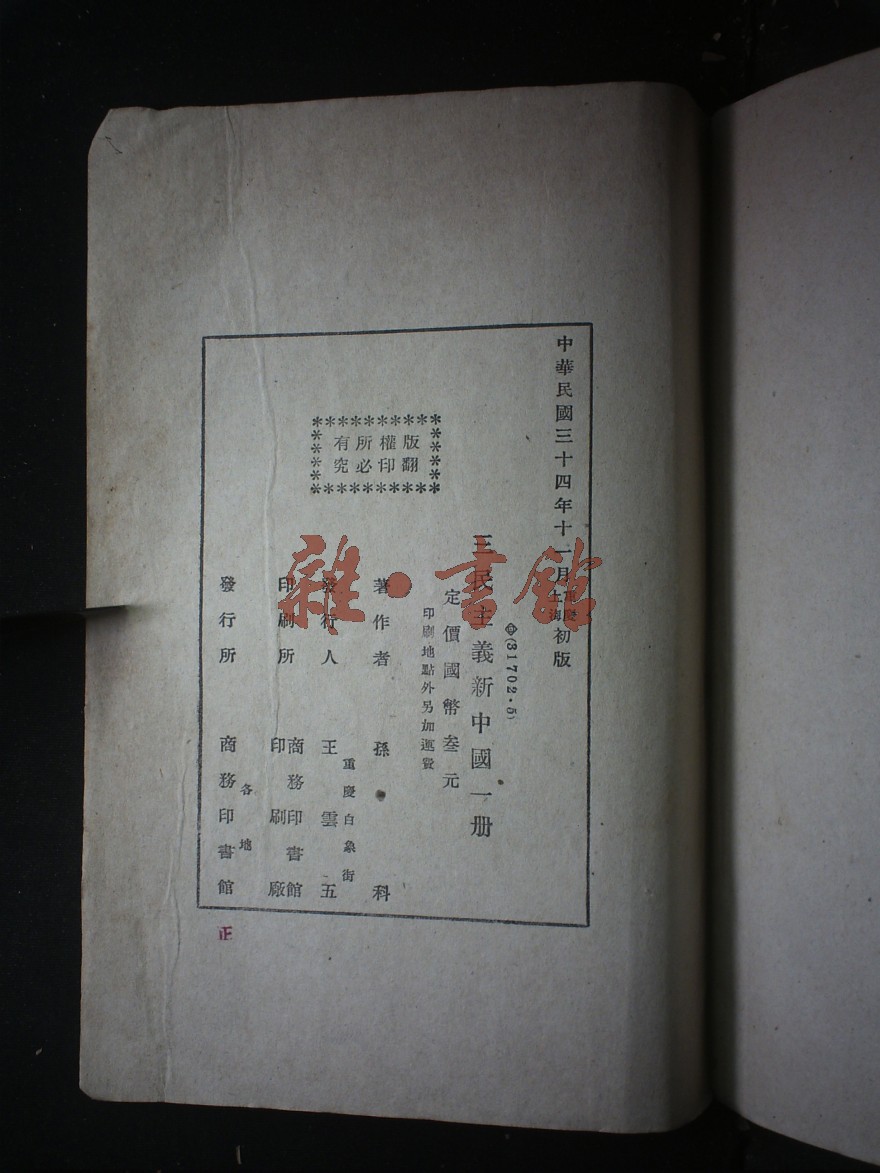 中華民國三十四年十一月重慶上海初版
(31702·5)
三民主義新中國一册
定價國幣叁元
印刷地點外另加運費
版權所有
翻印必究
著作者 孫科
重慶白象街
發行人 王雲五
印刷所 商務印書館印刷廠
各地
發行所 商務印書館
正
雜·書館